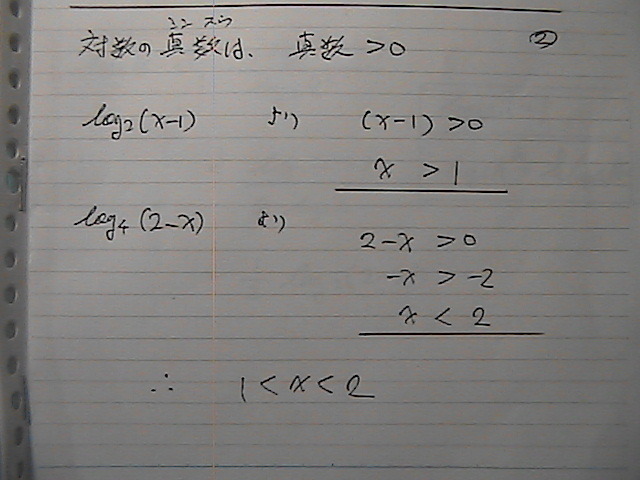 シンスウ
対数の真数は、 真数 > 0 ②
log₂(x-1) より (x-1) > 0
x > 1
log₄(2-x) より
2-x > 0
-x > -2
x < 2
∴ 1 < x < 2